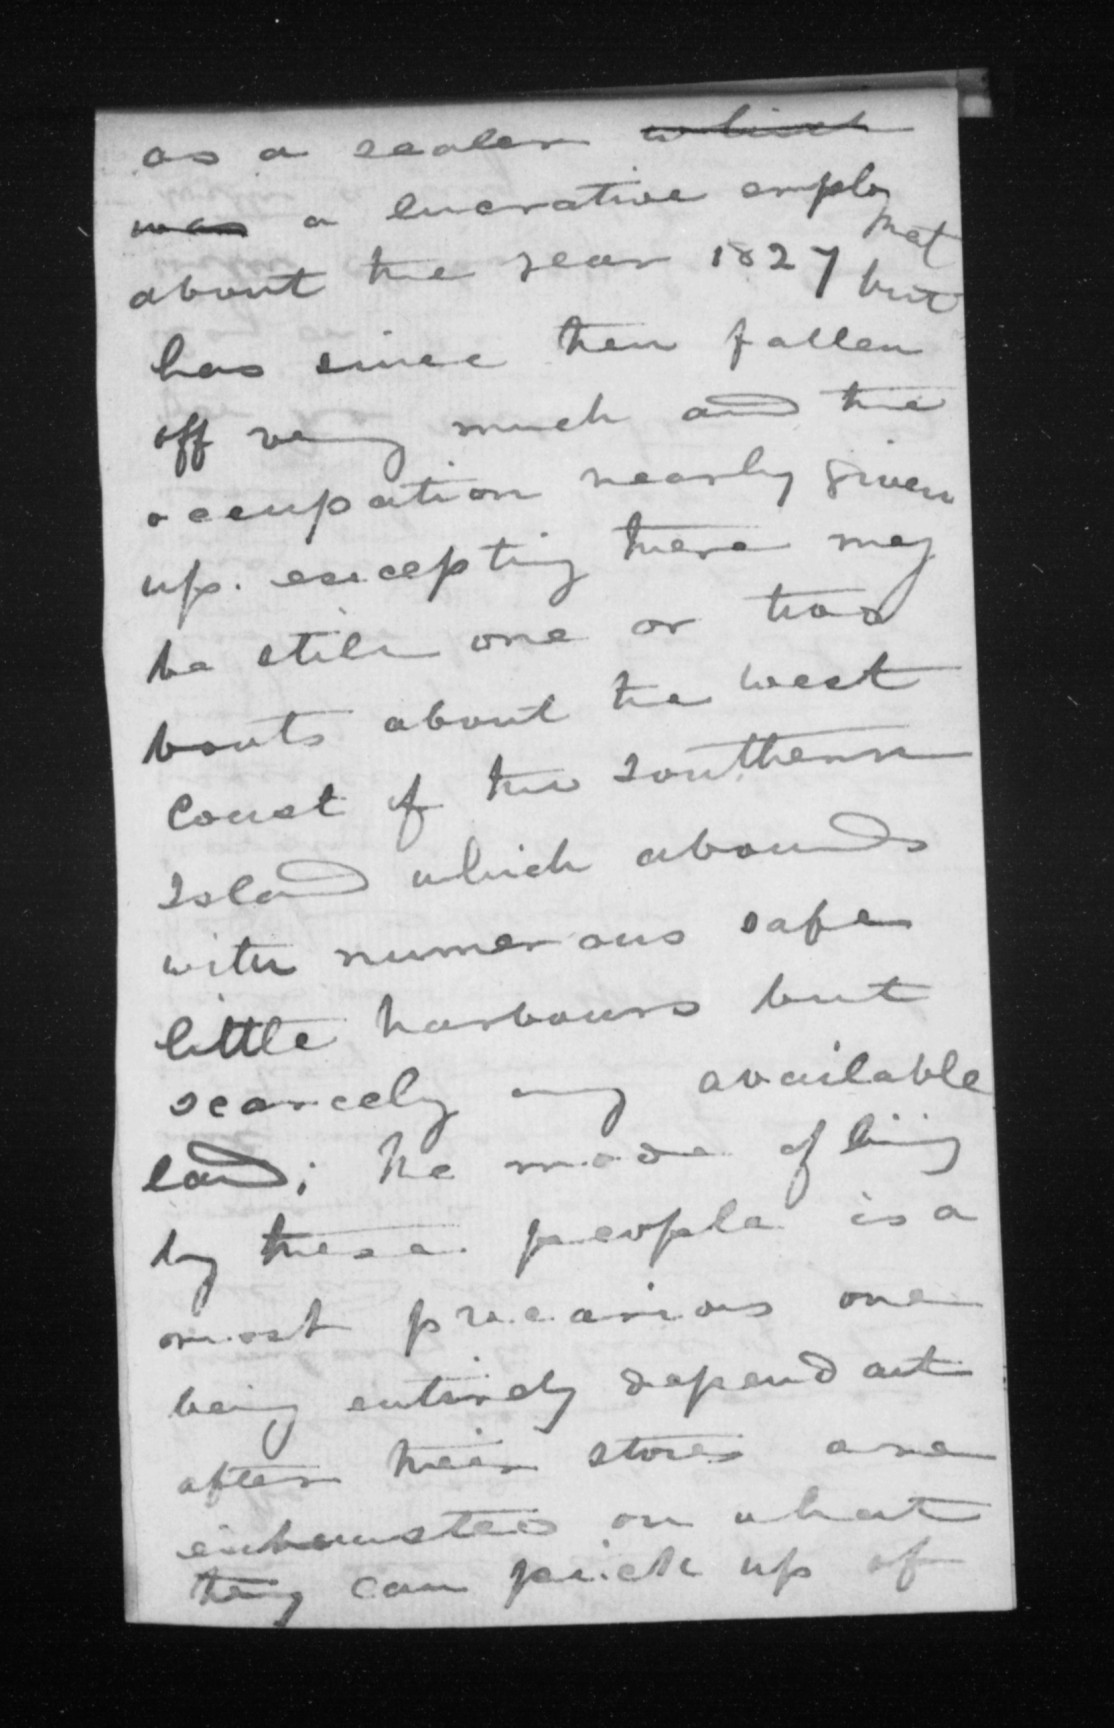 as a sealer which
was a lucrative employ
met
about the year 1827 but
has since then fallen
off very much and the
occupation nearly given
up. excepting there may
be still one or two
boats about the west
coast of the Southern
Island which abounds
with numerous safe
little harbours but
scarcely any available
land; the mode of living
by these people is a
most precarious one
being entirely dependant
after their stores are
exhausted on what
they can pick up of